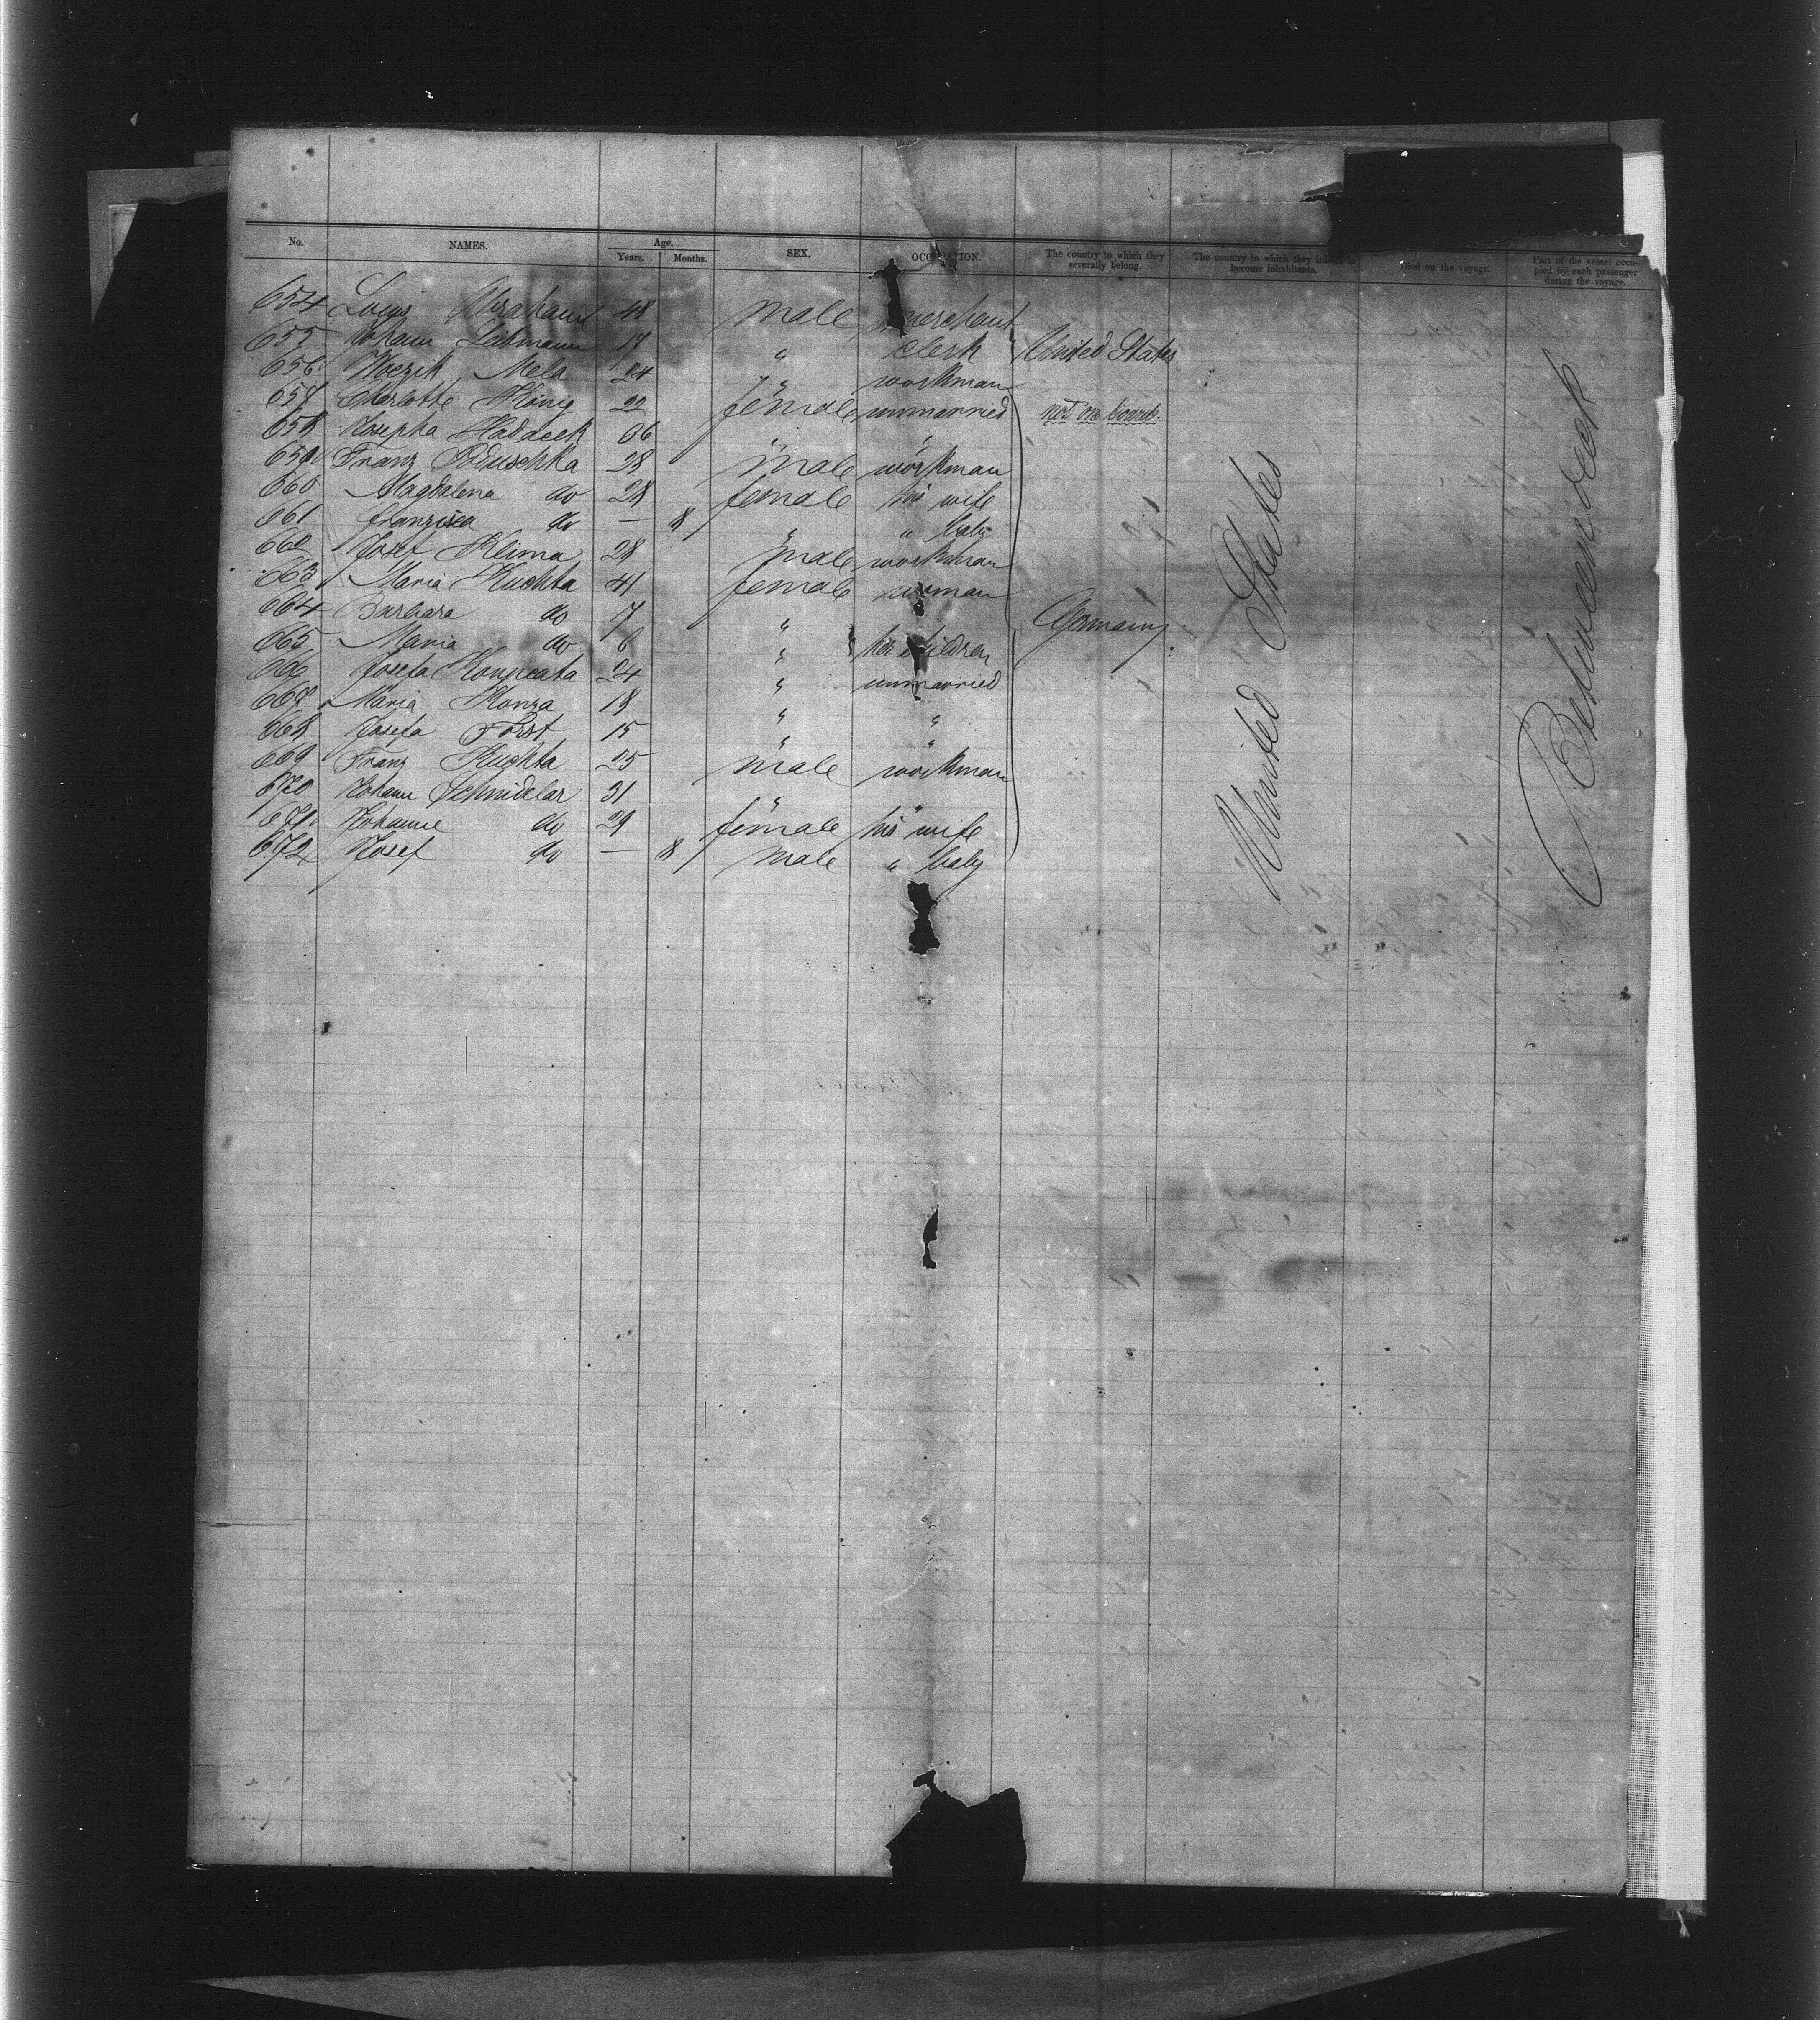 No. NAMES. Age. Years. Months. SEX. OCCUPATION. The country to which they severally belong. The country in which they intend to become inhabitants. Died on the voyage. Part of the vessel occupied by each passenger during the voyage.
654 Louis Abraham 48 male merchant
655 Johann Labmann 17 " clerk United States
656 Mela 24 " workman
657 Charlotte König 22 female unmarried not on board.
658 Josepha Hadacek 66 " "
659 Franz Poduschka 28 male workman
660 Magdalena do 28 female his wife
661 Franziska do — 8 " " baby
662 Josef Klima 28 male workman
663 Maria Kuchta 41 female woman
664 Barbara do 7 " Germany
665 Maria do 6 " her children
666 Josefa 24 " unmarried
667 Maria Konza 18 " "
668 Josefa Forst 15 " "
669 Franz Kuchta 25 male workman
670 Johann Schnidelar 31 " "
671 Johanne do 29 female his wife
672 Josef do — 8 male " baby
United States
Betweendeck